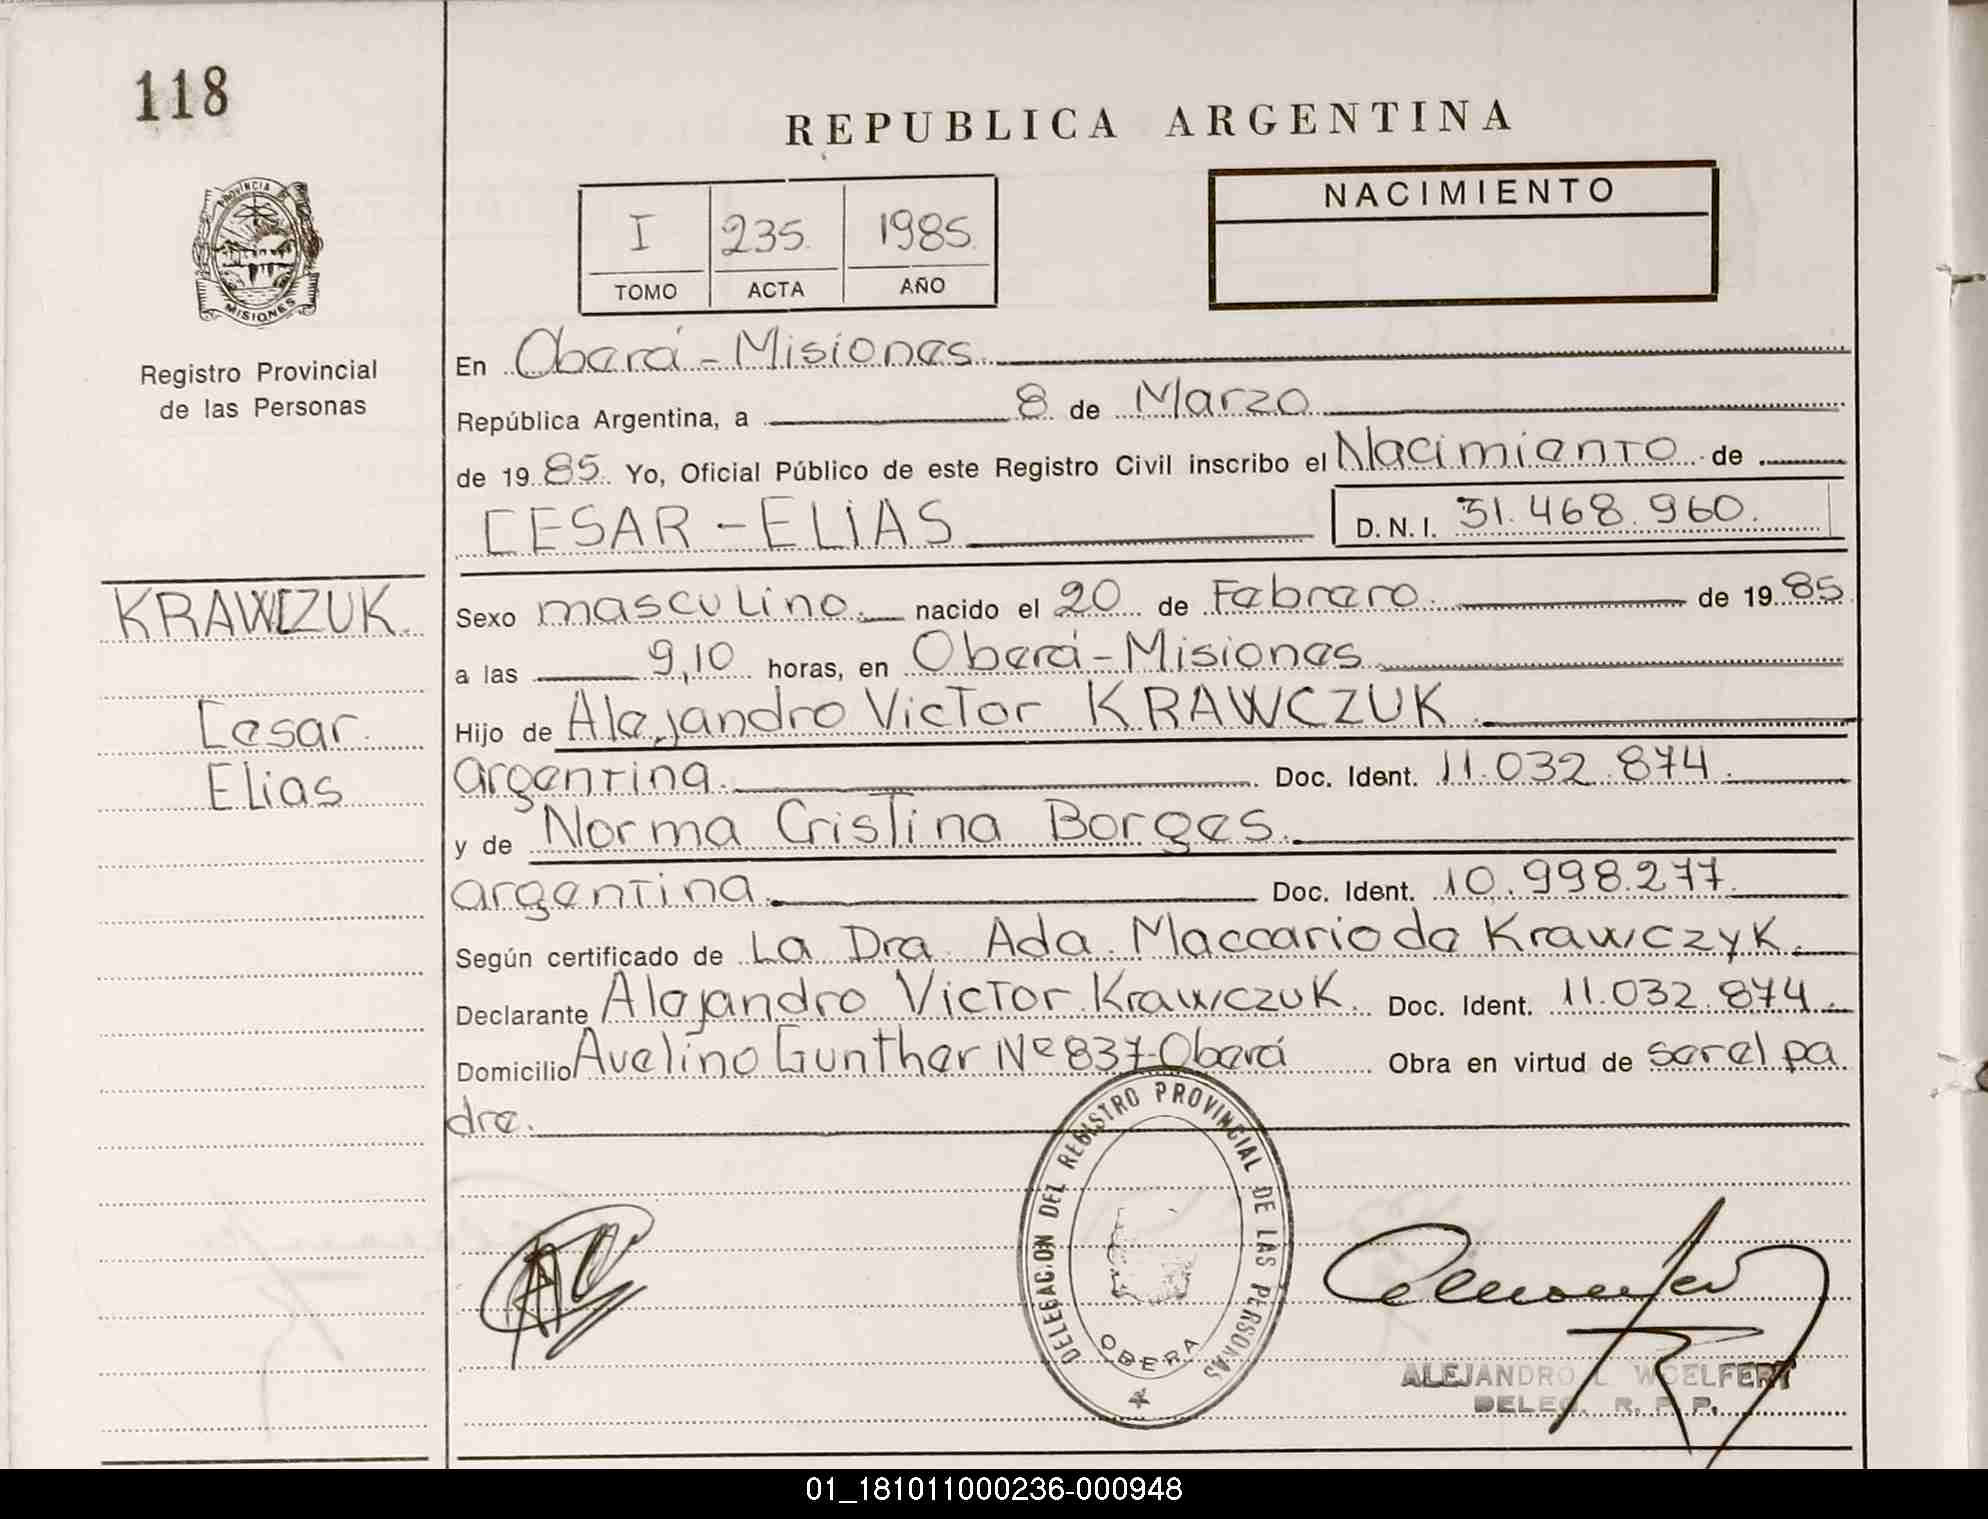 118
REPUBLICA ARGENTINA
NACIMIENTO
I 235 1985
TOMO ACTA AÑO
PROVINCIA DE
MISIONES
Registro Provincial
de las Personas
En Oberá - Misiones
República Argentina, a 8 de Marzo
de 19 85 Yo, Oficial Público de este Registro Civil inscribo el Nacimiento de
CESAR - ELIAS D.N.I. 31.468.960.
KRAWCZUK.
Cesar
Elias
Sexo masculino. nacido el 20 de Febrero de 19 85
a las 9,10 horas, en Oberá - Misiones
Hijo de Alejandro Victor KRAWCZUK
argentina. Doc. Ident. 11.032.874
y de Norma Cristina Borges.
argentina. Doc. Ident. 10.998.277
Según certificado de La Dra. Ada. Maccario de Krawczyk.
Declarante Alejandro Victor Krawczuk. Doc. Ident. 11.032.874.
Domicilio Avelino Gunther Nº 837-Oberá Obra en virtud de ser el pa
dre.
DELEGACION DEL REGISTRO PROVINCIAL DE LAS PERSONAS
OBERA
ALEJANDRO L. WOELFERT
DELEG. R. P. P.
01_181011000236-000948